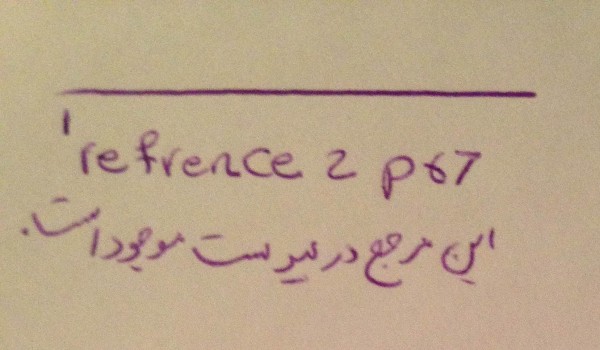 1 refrence 2 p67
این مرجع در پیوست موجود است.